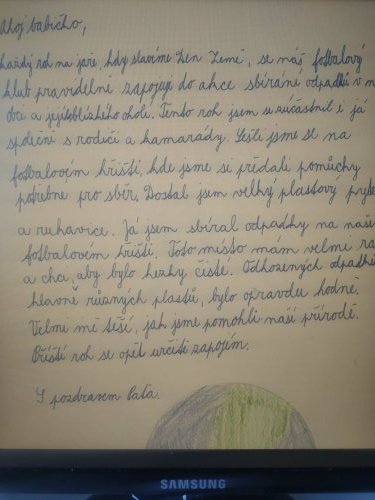 Ahoj babičko,
každý rok na jaře, kdy slavíme Den Země, se náš fotbalový
klub pravidelně zapojuje do akce sbírání odpadků v n
obci a jejího blízkého okolí. Tento rok jsem se zúčastnil i já
společně s rodiči a kamarády. Sešli jsme se na
fotbalovém hřišti, kde jsme si předali pomůcky
potřebné pro sběr. Dostal jsem velký plastový pyte
a rukavice. Já jsem sbíral odpadky na naše
fotbalovém hřišti. Toto místo mám velmi rá
a chci, aby bylo hezky čisté. Odhozených odpadků
hlavně různých plastů, bylo opravdu hodně.
Velmi mě těší, jak jsme pomohli naší přírodě.
Příští rok se opět určitě zapojím.
S pozdravem Pata.
SAMSUNG